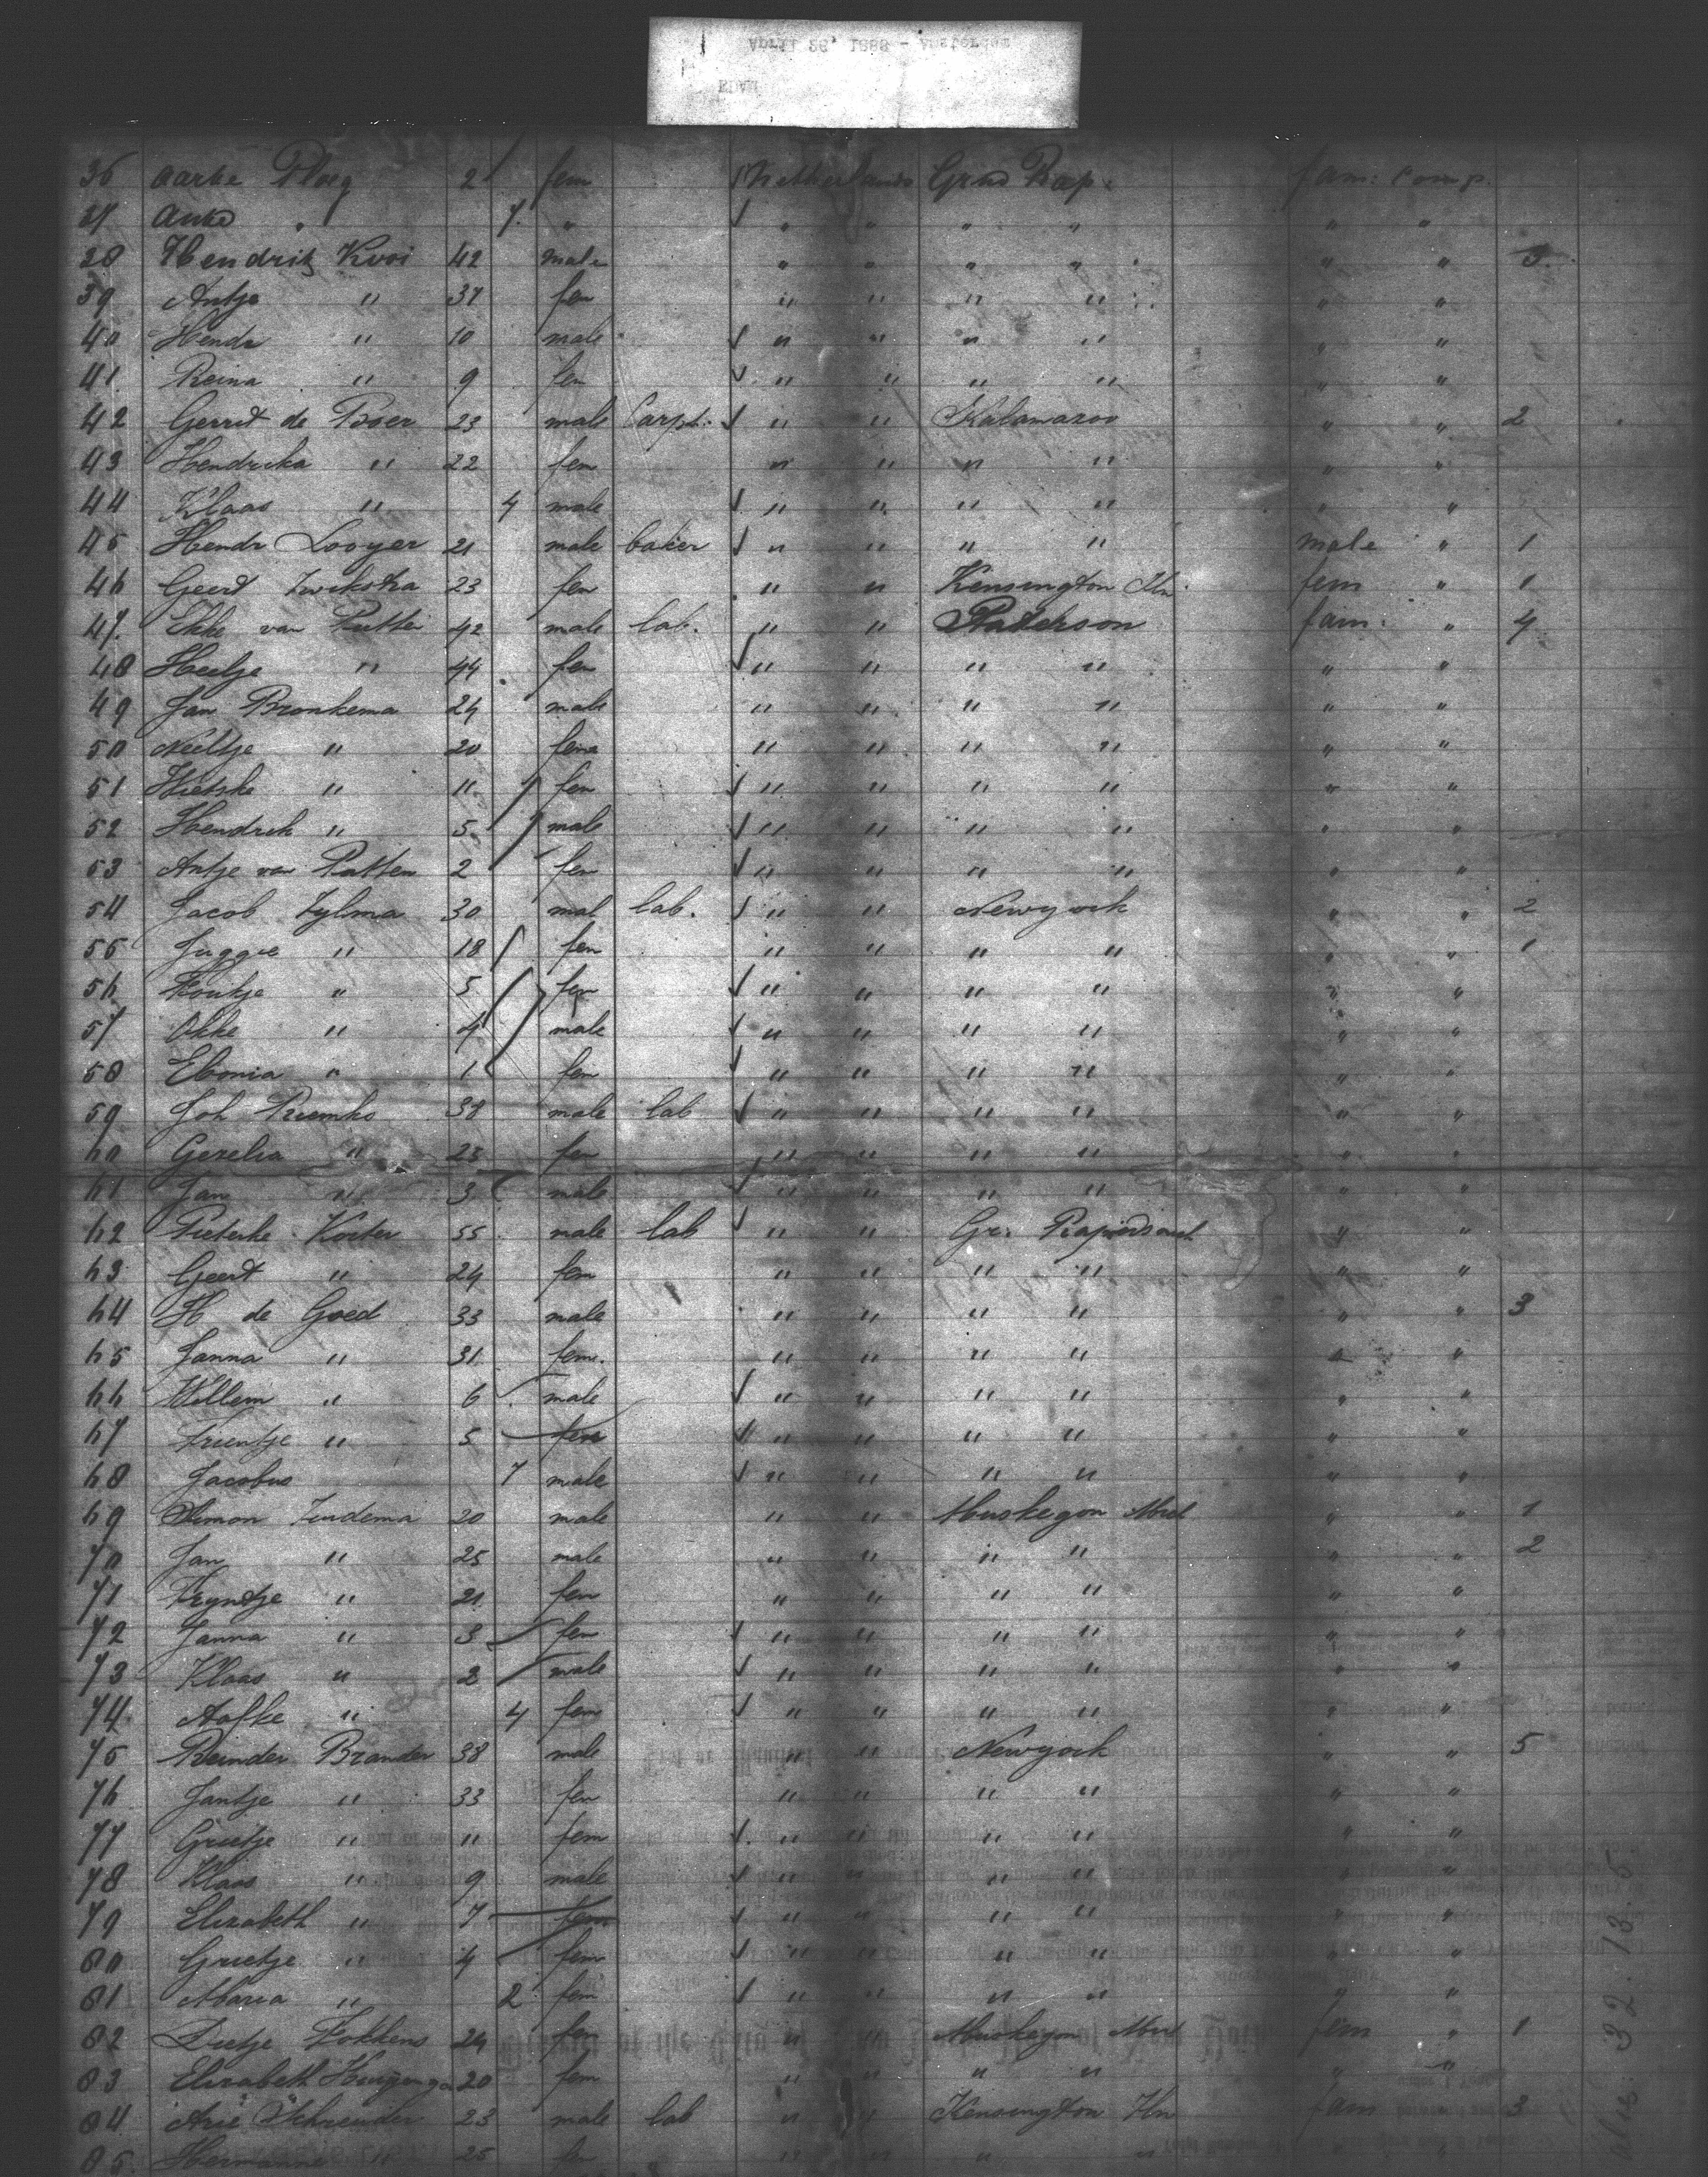 April 28, 1888 - Amsterdam
EDAM
36 Aarbe Ploeg 2 fem Netherlands Grnd Rap. fam: comp.
37 Anke " 7. " " " " " " "
38 Hendrik Kooi 42 male " " " " " " 3.
39 Antje " 37 fem " " " " " "
40 Hendr " 10 male " " " " " "
41 Reina " 9 fem " " " " " "
42 Gerrit de Boer 23 male Carpt: " " Kalamazoo " " 2
43 Hendrika " 22 fem " " " " " "
44 Klaas " 4 male " " " " " "
45 Hendr Looyer 21 male baker " " " " male " 1
46 Geert Zwikstra 23 fem " " Kensington Iln fem " 1
47. Ekke van Putten 42 male lab. " " Paterson fam: " 4
48 Heeltje " 44 fem " " " " " "
49 Jan Bronkema 24 male " " " " " "
50 Neeltje " 20 fema " " " " " "
51 Hietske " 11 fem " " " " " "
52 Hendrik " 5 male " " " " " "
53 Antje van Putten 2 fem " " " " " "
54 Jacob Zylma 30 mal lab. " " Newyork " " 2
55 " 18 fem " " " " " " 1
56 Foukje " 5 fem " " " " " "
57 Okke " 4 male " " " " " "
58 Ebonia " 1 fem " " " " " "
59 Joh Riemko 38 male lab " " " " " "
60 Gezelia " 25 fem " " " " " "
61 Jan " 3 male " " " " " "
62 Pieterke Koster 55 male lab " " Gr. " "
63 Geert " 24 fem " " " " " "
64 H de Goed 33 male " " " " " " 3
65 Janna " 31 fem. " " " " " "
66 Willem " 6 male " " " " " "
67 Trientje " 5 fem " " " " " "
68 Jacobus 7 male " " " " " "
69 Simon Zuidema 20 male " " Muskegon Mich " " 1
70 Jan " 25 male " " " " " " 2
71 Tryntje " 21 fem " " " " " "
72 Janna " 3 fem " " " " " "
73 Klaas " 2 male " " " " " "
74 Aafke " 4 fem " " " " " "
75 Reinder Brander 38 male " " Newyork " " 5
76 Jantje " 33 fem " " " " " "
77 Grietje " 11 fem " " " " " "
78 Klaas " 9 male " " " " " "
79 Elizabeth " 7 fem " " " " " "
80 Grietje " 4 fem " " " " " "
81 Maria " 2 fem " " " " " "
82 Dietje Fokkens 24 fem " " Muskegon Mich fem " 1
83 Elizabeth 20 fem " " " " " "
84 Arie Schreuder 23 male lab " " Kensington Iln fam " 3
85. Hermanna " 25 fem " " " "
32. 13. 5